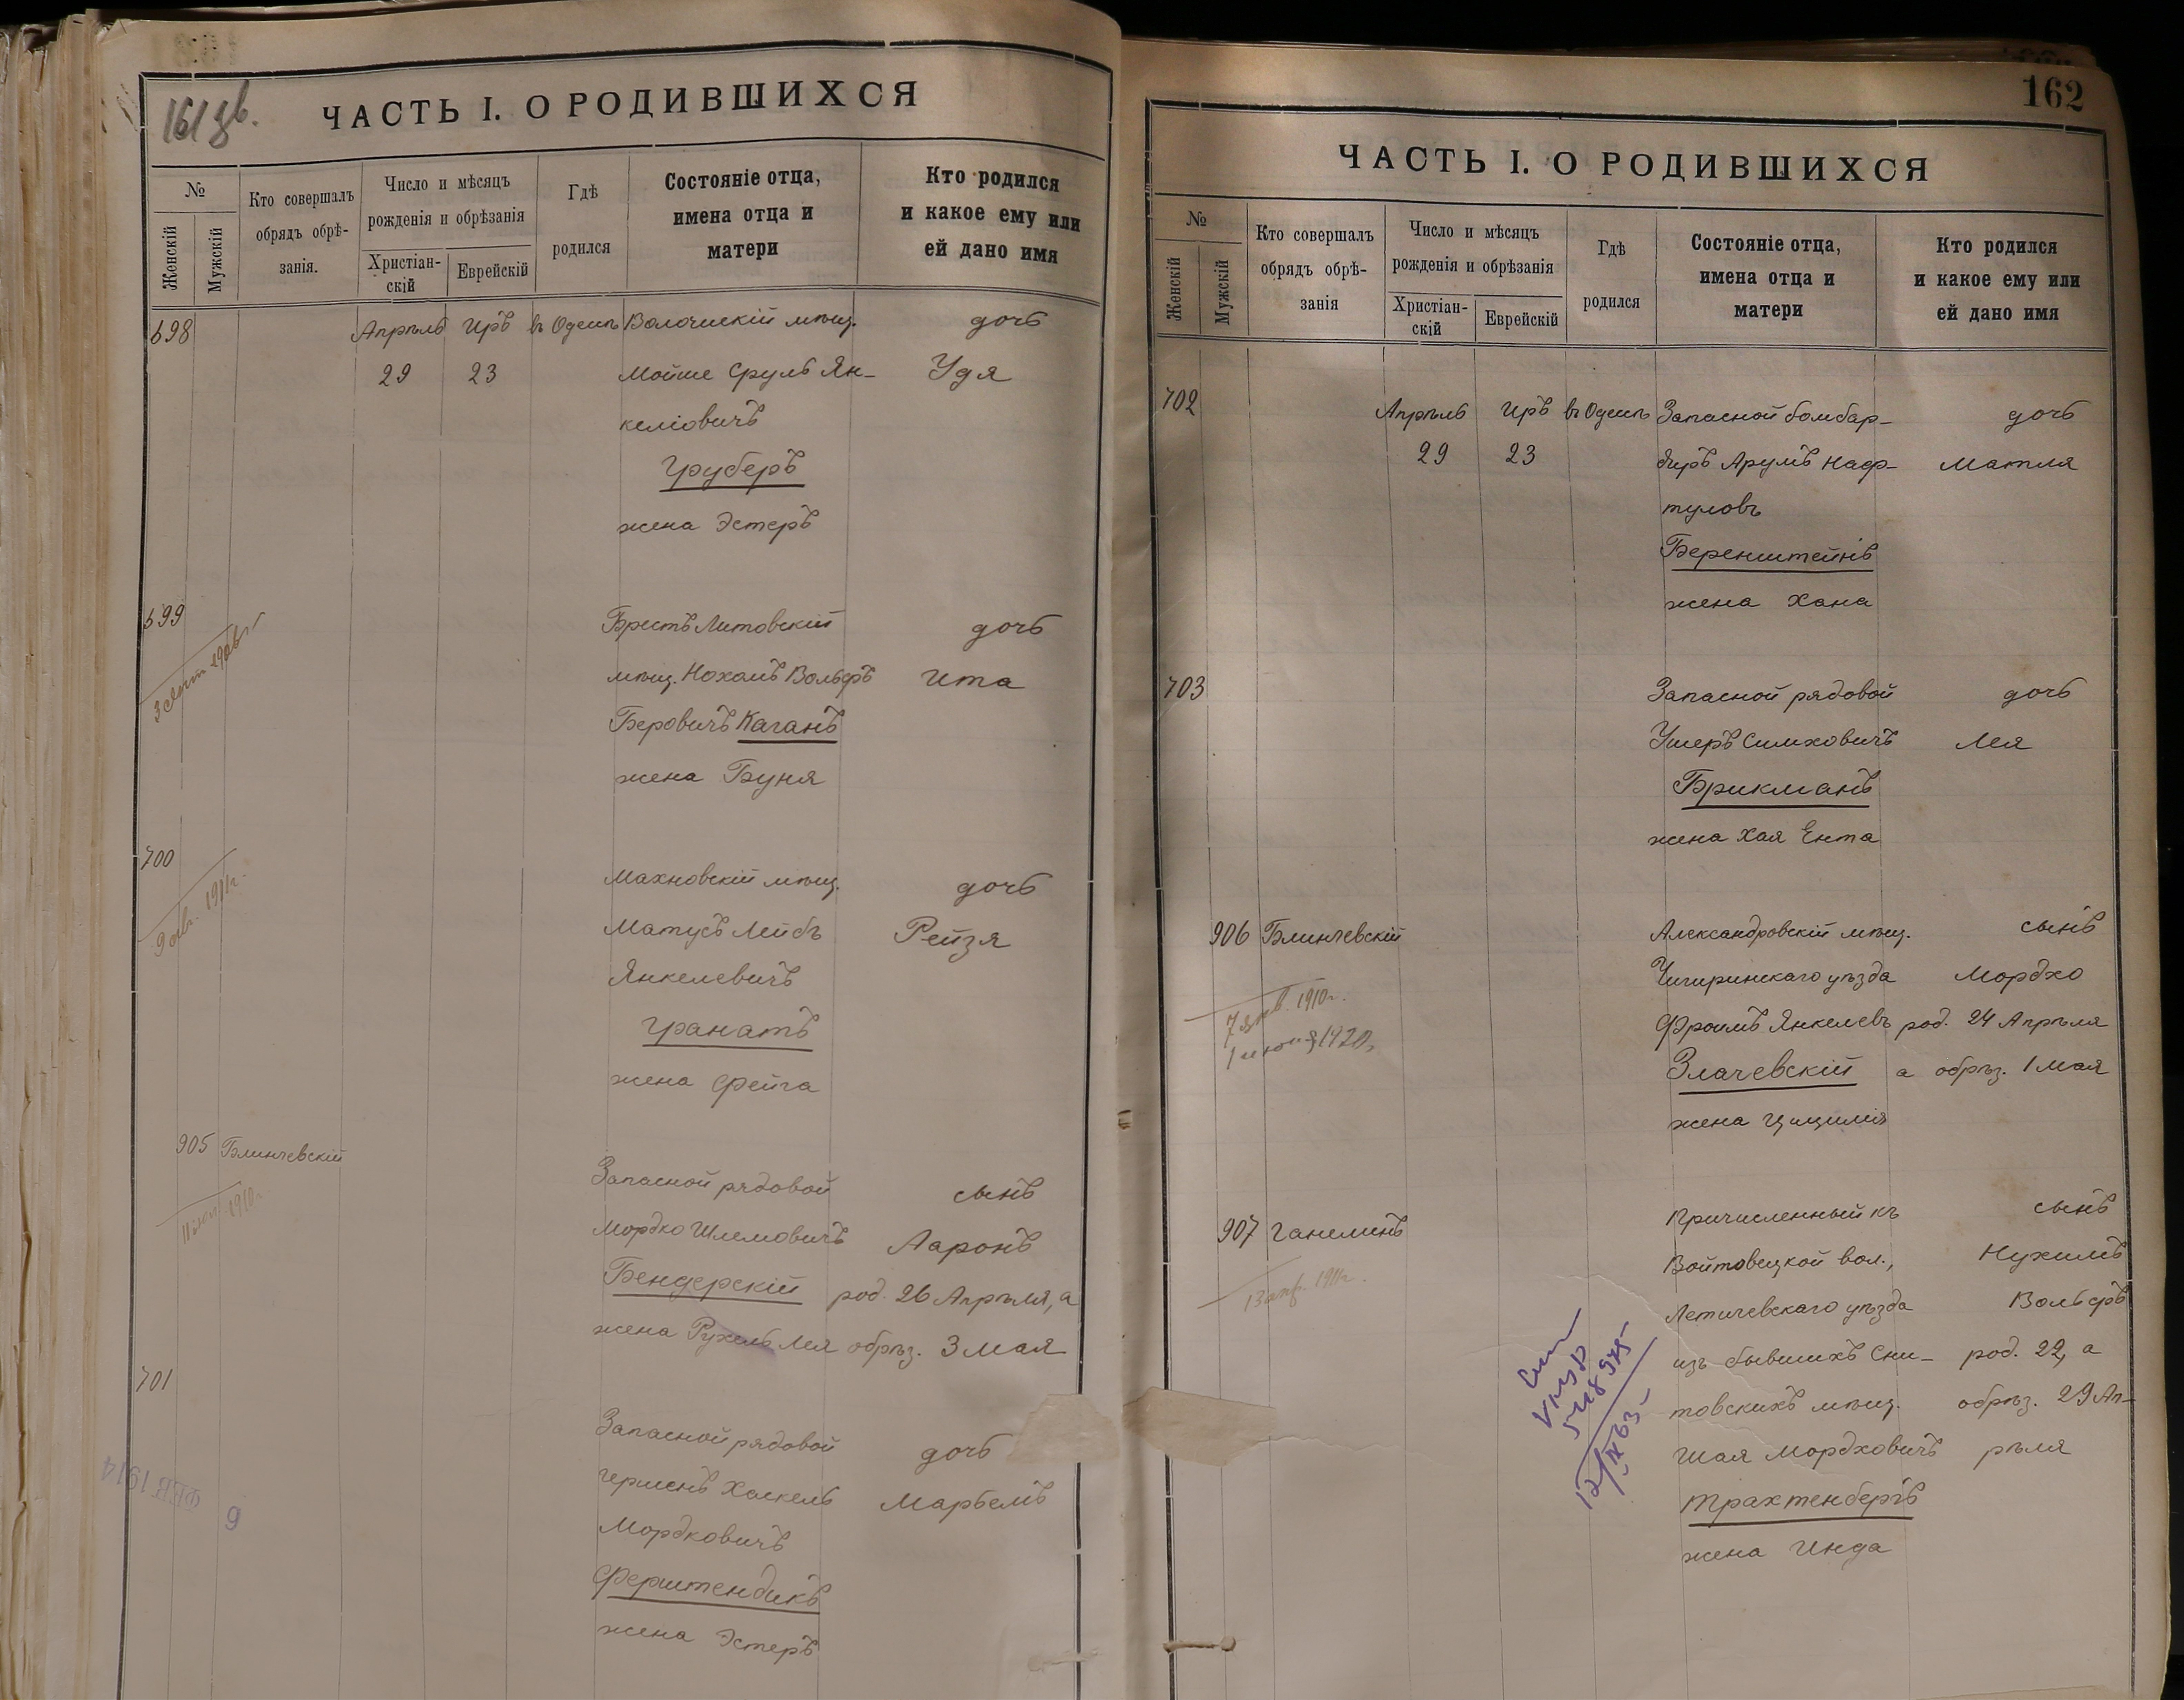 161 зв.
ЧАСТЬ I. О РОДИВШИХСЯ
№
Женскій
Мужскій
Кто совершалъ
обрядъ обрѣ-
занія.
Число и мѣсяцъ
рожденія и обрѣзанія
Христіан-
скій
Еврейскій
Гдѣ
родился
Состояніе отца,
имена отца и
матери
Кто родился
и какое ему или
ей дано имя
698 Апрѣль Иръ въ Одессѣ Волочискій мѣщ. дочь
29 23 Мойше Сруль Ян- Удя
келіовичъ
Груберъ
жена Эстеръ
699 Брестъ Литовскій дочь
мѣщ. Нохомъ Вольфъ Ита
Беровичъ Каганъ
жена Буня
700 Махновскій мѣщ. дочь
9 1911 г.
Матусъ Лейбъ Рейзя
Янкелевичъ
Гранатъ
жена Фейга
905 Блинчевскій Запасной рядовой сынъ
1910 г.
Мордко Шлемовичъ Ааронъ
Бендерскій род. 26 Апрѣля, а
жена Рухель Лея обрѣз. 3 мая
701 Запасной рядовой дочь
Гершонъ Хаскель Марьемъ
Мордковичъ
Ферштендикъ
жена Эстеръ
6 ФЕВ 1914
162
ЧАСТЬ I. О РОДИВШИХСЯ
№
Женскій
Мужскій
Кто совершалъ
обрядъ обрѣ-
занія
Число и мѣсяцъ
рожденія и обрѣзанія
Христіан-
скій
Еврейскій
Гдѣ
родился
Состояніе отца,
имена отца и
матери
Кто родился
и какое ему или
ей дано имя
702 Апрѣль Иръ въ Одессѣ Запасной бомбар- дочь
29 23 диръ Арумъ Наф- Матля
туловъ
Беренштейнъ
жена Хана
703 Запасной рядовой дочь
Ушеръ Симховичъ Лея
Брикманъ
жена Хая Ента
906 Блинчевскій Александровскій мѣщ. сынъ
Чигиринскаго уѣзда Мордхо
7 янв. 1910 г.
Фроимъ Янкелевъ род. 24 Апрѣля
1 1920 г.
Злачевскій а обрѣз. 1 мая
жена Цицилія
907 Ганелинъ Причисленный къ сынъ
Войтовецкой вол., Нухимъ
13 апр. 1911 г.
Летичевскаго уѣзда Вольфъ
изъ бывшихъ Сни- род. 22, а
товскихъ мѣщ. обрѣз. 29 Ап-
Шая Мордховичъ рѣля
12/IX 63
Трахтенбергъ
жена Инда